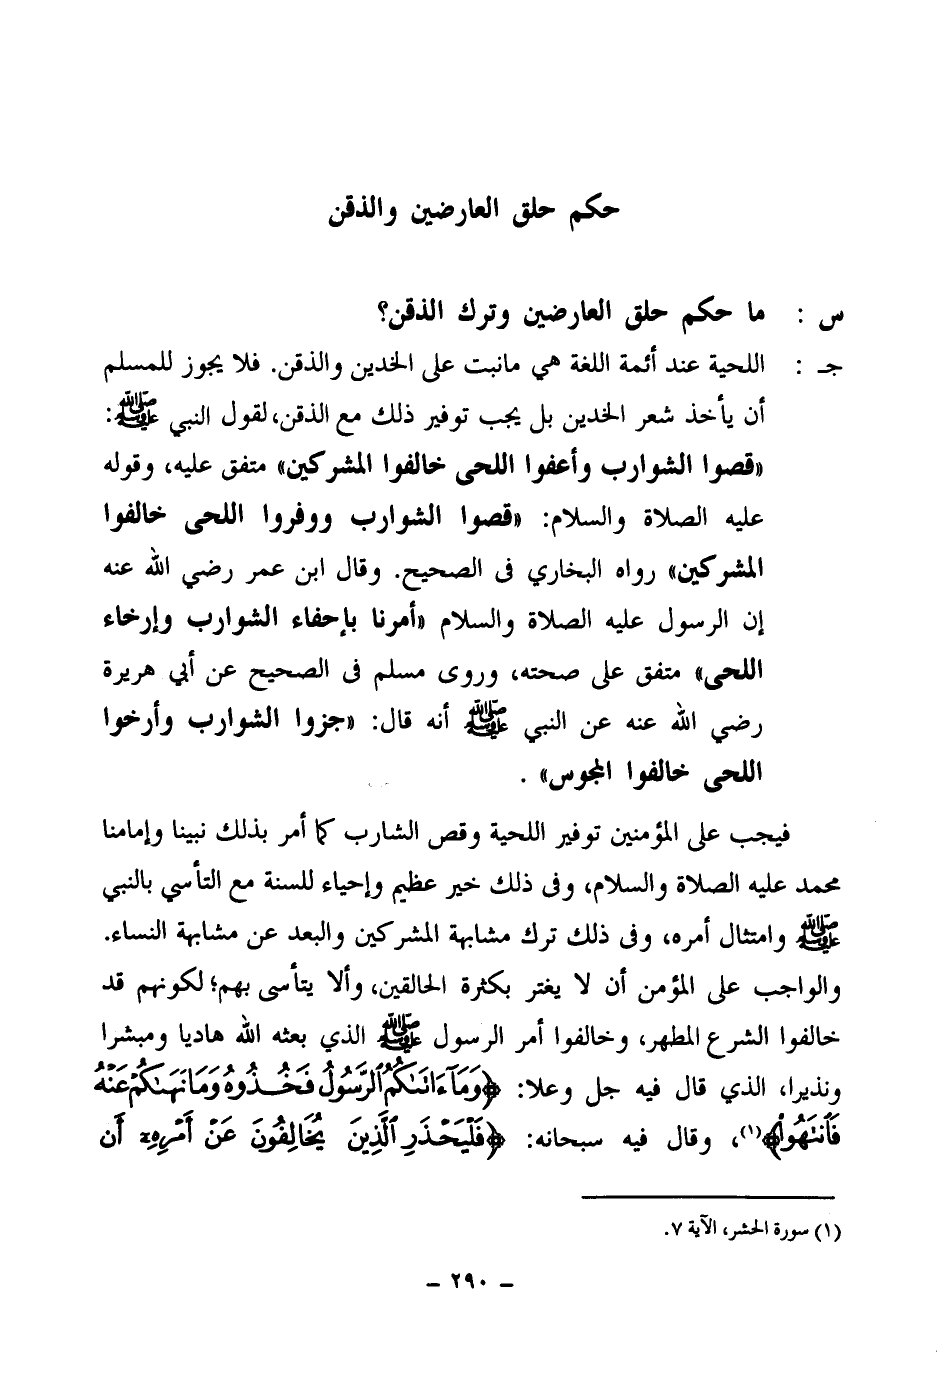 حكم حلق العارضين والذقن
س : ما حكم حلق العارضين وترك الذقن؟
جـ : اللحية عند أئمة اللغة هي مانبت على الخدين والذقن. فلا يجوز للمسلم
أن يأخذ شعر الخدين بل يجب توفير ذلك مع الذقن، لقول النبي ﷺ:
«قصوا الشوارب وأعفوا اللحى خالفوا المشركين» متفق عليه، وقوله
عليه الصلاة والسلام: «قصوا الشوارب ووفروا اللحى خالفوا
المشركين» رواه البخاري فى الصحيح. وقال ابن عمر رضي الله عنه
إن الرسول عليه الصلاة والسلام «أمرنا بإحفاء الشوارب وإرخاء
اللحى» متفق على صحته، وروى مسلم فى الصحيح عن أبي هريرة
رضي الله عنه عن النبي ﷺ أنه قال: «جزوا الشوارب وأرخوا
اللحى خالفوا المجوس» .
فيجب على المؤمنين توفير اللحية وقص الشارب كما أمر بذلك نبينا وإمامنا
محمد عليه الصلاة والسلام، وفى ذلك خير عظيم وإحياء للسنة مع التأسي بالنبي
ﷺ وامتثال أمره، وفى ذلك ترك مشابهة المشركين والبعد عن مشابهة النساء.
والواجب على المؤمن أن لا يغتر بكثرة الحالقين، وألا يتأسى بهم؛ لكونهم قد
خالفوا الشرع المطهر، وخالفوا أمر الرسول ﷺ الذي بعثه الله هاديا ومبشرا
ونذيرا، الذي قال فيه جل وعلا: ﴿وَمَآ ءَاتَىٰكُمُ ٱلرَّسُولُ فَخُذُوهُ وَمَا نَهَىٰكُمْ عَنْهُ
فَٱنتَهُوا۟﴾(١)، وقال فيه سبحانه: ﴿فَلْيَحْذَرِ ٱلَّذِينَ يُخَالِفُونَ عَنْ أَمْرِهِۦٓ أَن
(١) سورة الحشر، الآية ٧.
– ٢٩٠ –